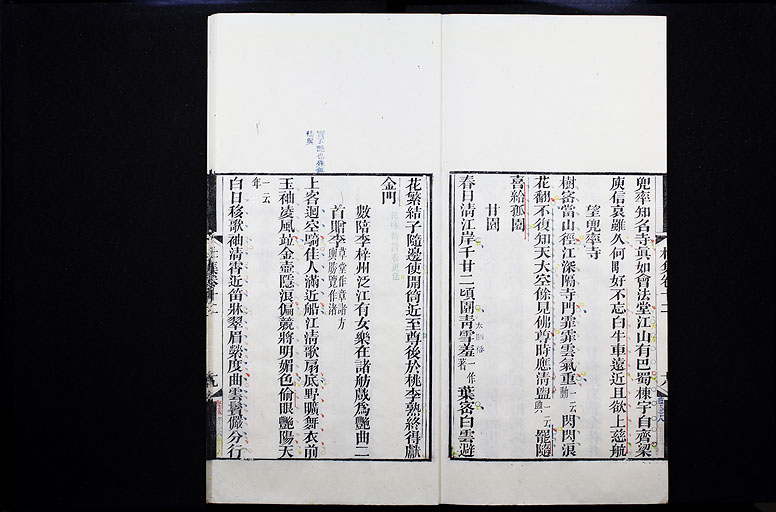 兜率知名寺眞如會法堂江山有巴蜀棟宇自齊梁
庾信哀雖久何顒好不忘白牛車遠近且欲上慈航
望兜率寺
樹密當山徑江深隔寺門霏霏雲氣重一云動閃閃浪
花翻不復知天大空餘見佛尊時應清盥一云興罷隨
喜給孤園
甘園
春日清江岸千甘二頃園青雲羞一作著葉密白雲避
花繁結子隨邊使開筒近至尊後於桃李熟終得獻
金門
數陪李梓州泛江有女樂在諸舫戲為豔曲二
首贈李草堂作章諸方輿勝覽作渚
上客迴空騎佳人滿近船江清歌扇底野曠舞衣前
玉袖凌風竝金壺隱浪偏競將明媚色偷眼豔陽天
一云年
白日移歌袖清霄近笛牀翠眉縈度曲雲鬢儼分行